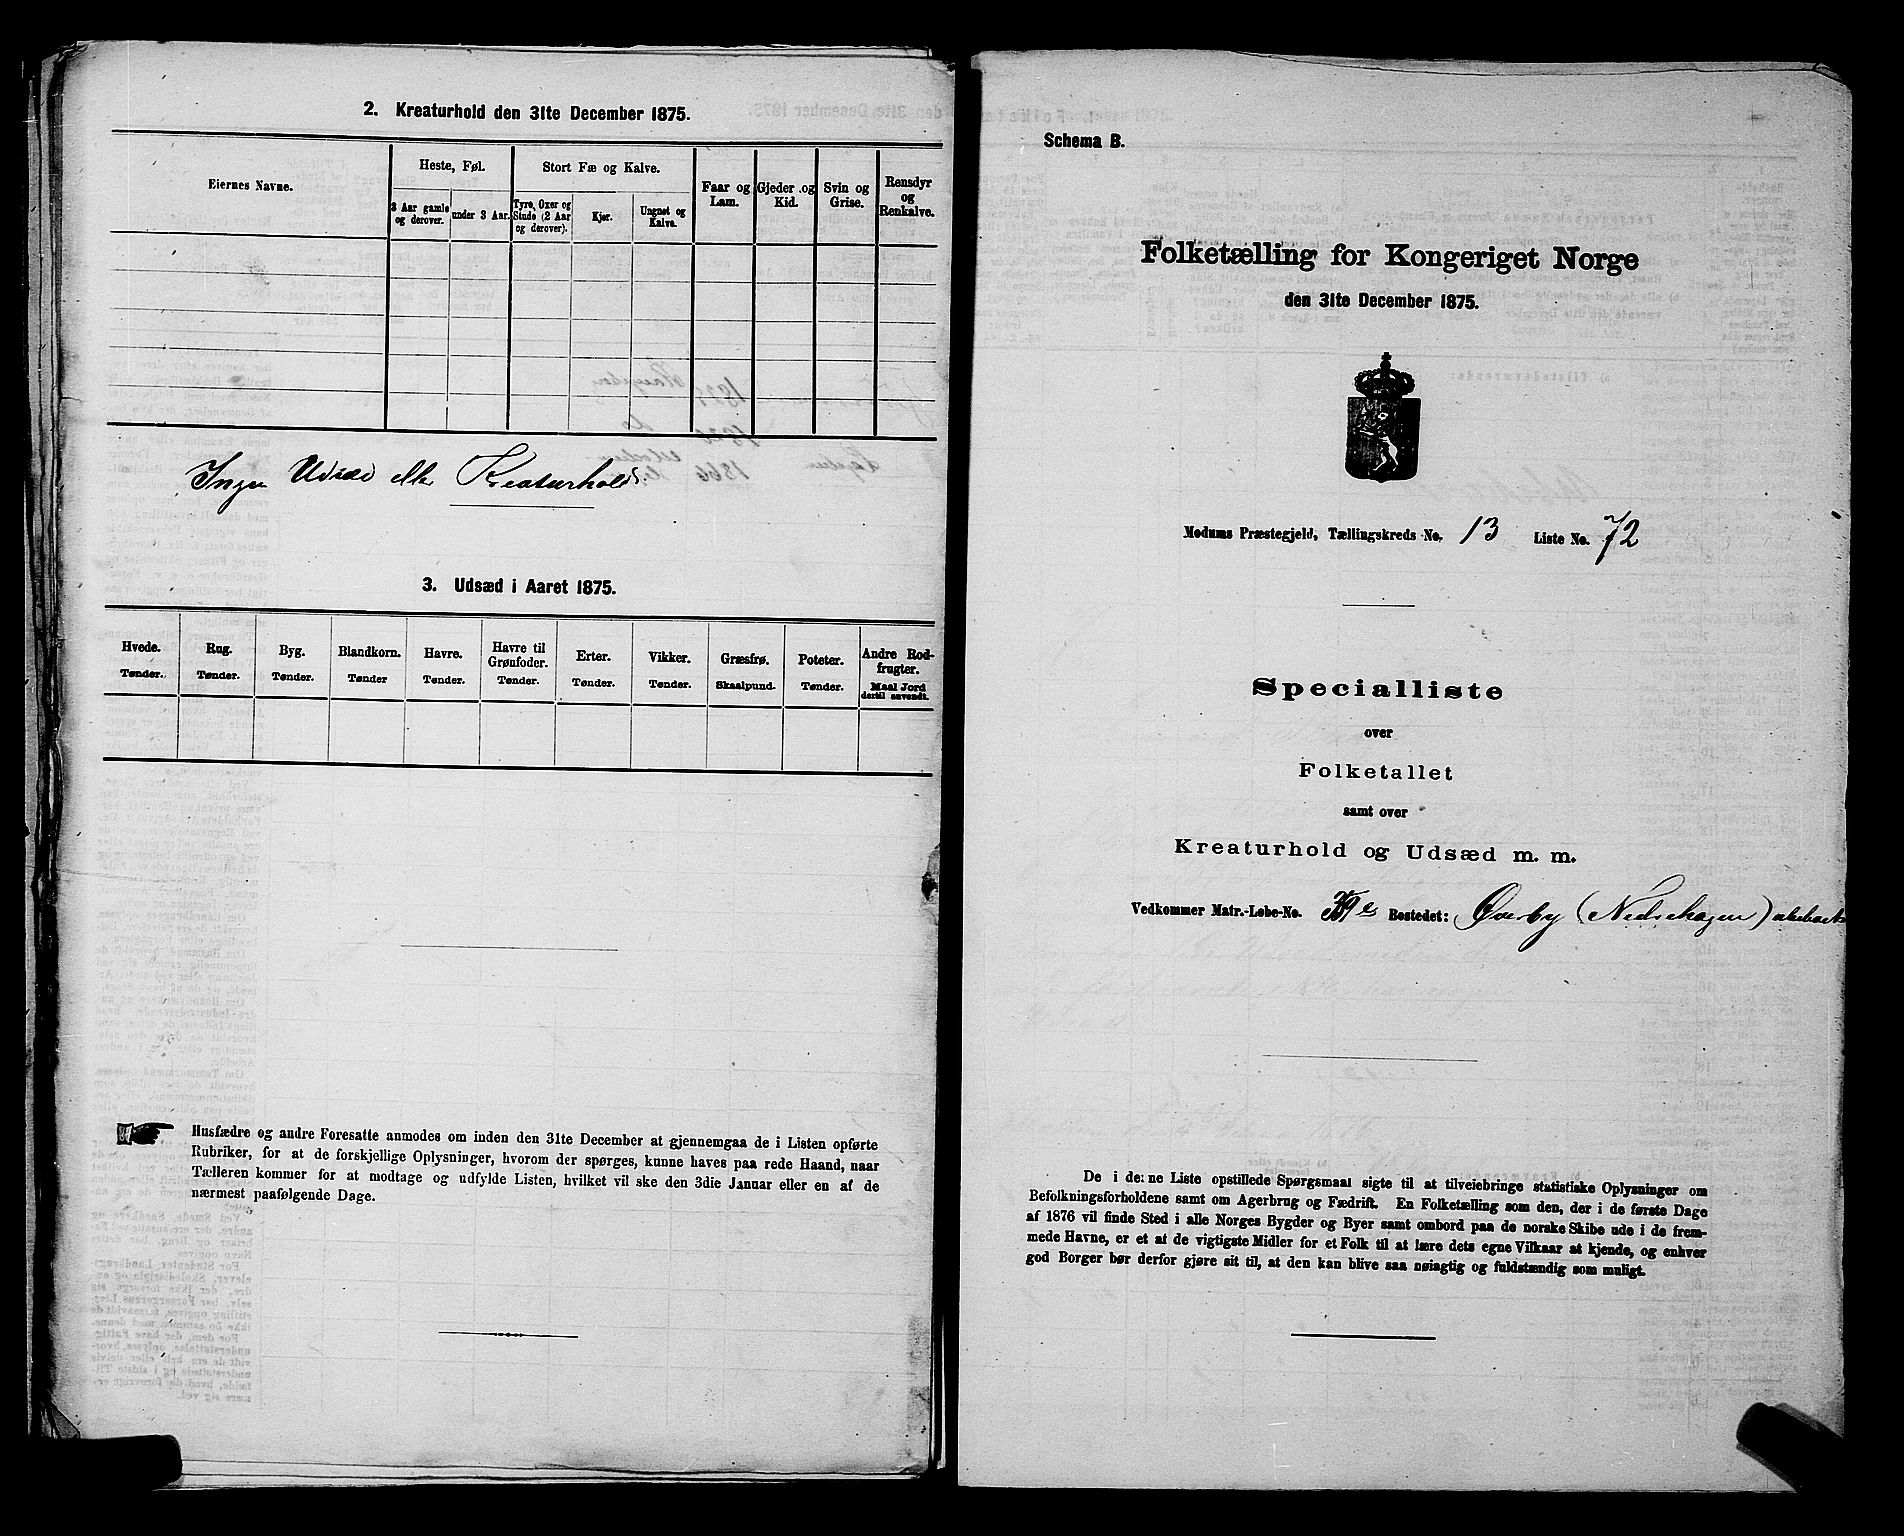 2. Kreaturhold den 31te December 1875.
Eiernes Navne.
Heste, Føl.
3 Aar gamle og derover.
under 3 Aar.
Stort Fæ og Kalve.
Tyre, Oxer og Stude (2 Aar og derover).
Kjør.
Ungnet og Kalve.
Faar og Lam.
Gjeder og Kid.
Svin og Grise.
Rensdyr og Renkalve.
Ingen Udsæd eller Kreaturhold.
3. Udsæd i Aaret 1875.
Hvede. Tønder.
Rug. Tønder.
Byg. Tønder.
Blandkorn. Tønder
Havre. Tønder.
Havre til Grønfoder. Tønder.
Erter. Tønder.
Vikker. Tønder.
Græsfrø. Skaalpund.
Poteter. Tønder.
Andre Rodfrugter. Maal Jord dertil anvendt.
Husfædre og andre Foresatte anmodes om inden den 31te December at gjennemgaa de i Listen opførte
Rubriker, for at de forskjellige Oplysninger, hvorom der spørges, kunne haves paa rede Haand, naar
Tælleren kommer for at modtage og udfylde Listen, hvilket vil ske den 3die Januar eller en af de
nærmest paafølgende Dage.
Schema B.
Folketælling for Kongeriget Norge
den 31te December 1875.
Modums Præstegjeld, Tællingskreds No. 13 Liste No. 72
Specialliste
over
Folketallet
samt over
Kreaturhold og Udsæd m. m.
Vedkommer Matr.-Løbe-No. Bostedet: Øverby (Nedrehagen)
De i denne Liste opstillede Spørgsmaal sigte til at tilveiebringe statistiske Oplysninger om
Befolkningsforholdene samt om Agerbrug og Fædrift. En Folketælling som den, der i de første Dage
af 1876 vil finde Sted i alle Norges Bygder og Byer samt ombord paa de norske Skibe ude i de frem-
mede Havne, er et at de vigtigste Midler for et Folk til at lære dets egne Vilkaar at kjende, og enhver
god Borger bør derfor gjøre sit til, at den kan blive saa nøiagtig og fuldstændig som muligt.